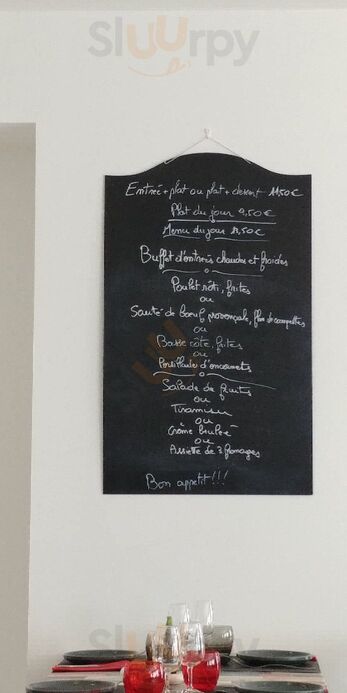 Sluurpy
Entrée + plat ou plat + dessert 11,50€
Plat du jour 9,50€
Menu du jour 14,50€
Buffet d'entrées chaudes et froides
Poulet rôti, frites
ou
Sauté de boeuf provençale, flan de courgettes
ou
Basse côte, frites
ou
d'encornets
Salade de fruits
ou
Tiramisu
ou
Crème brulée
ou
Assiette de 3 fromages
Bon appetit!!!
Sluurpy